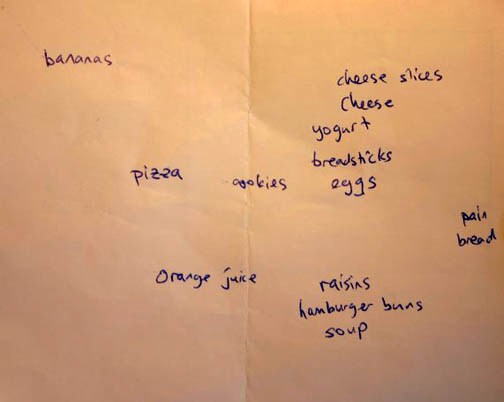 bananas
cheese slices
Cheese
yogurt
breadsticks
pizza cookies eggs
pain
bread
Orange juice raisins
hamburger buns
soup